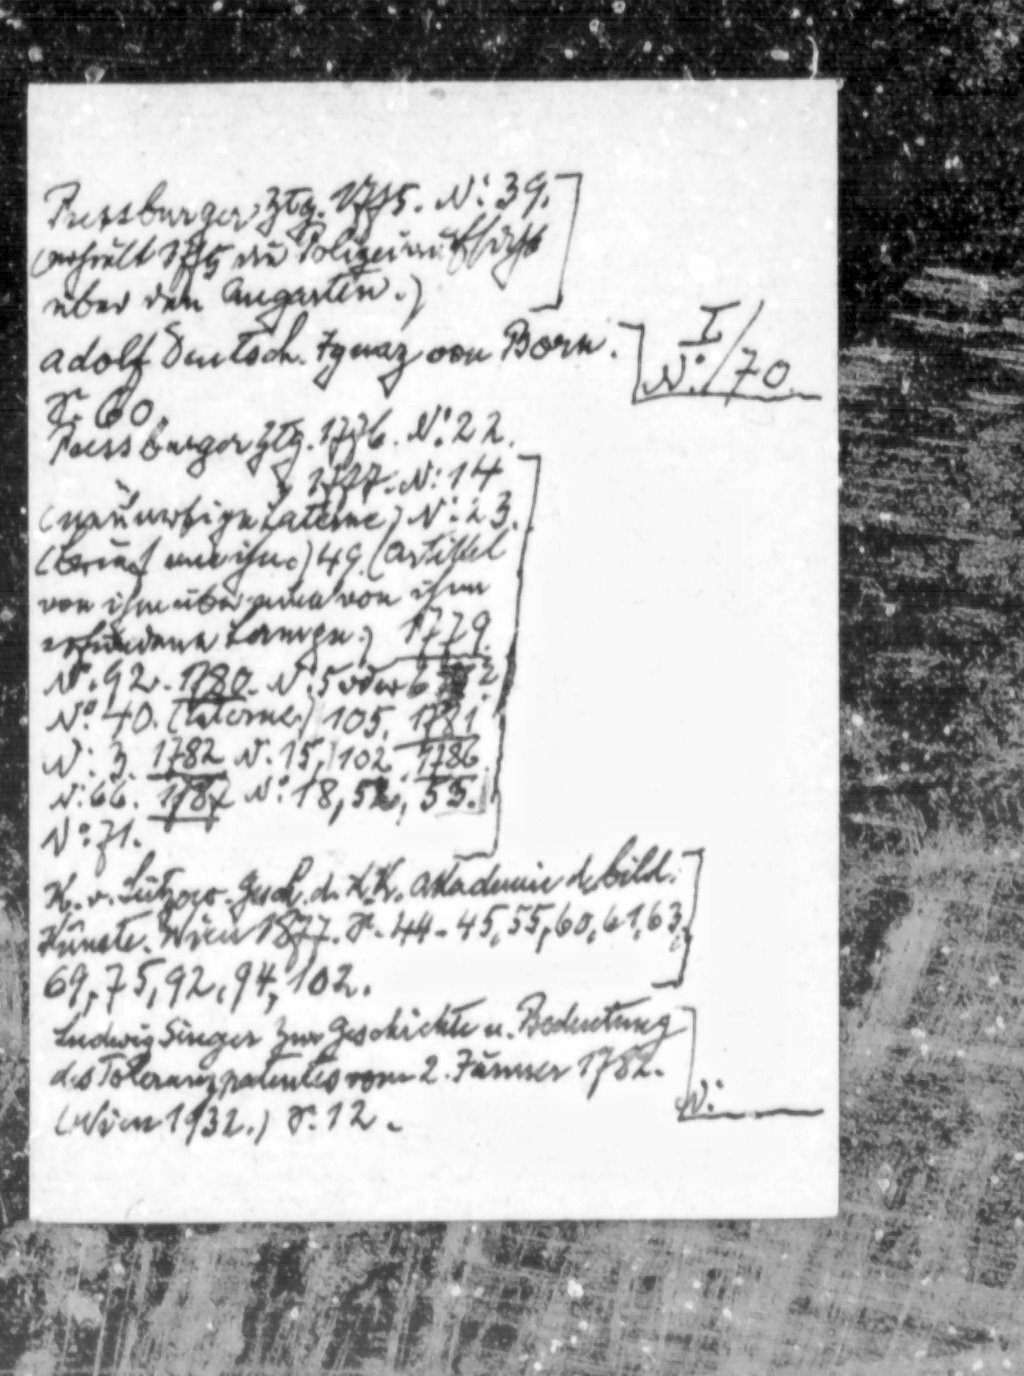 Pressburger Ztg. 1775. N: 39.
(erhielt 1775 die Polizeiaufsicht
über den Augarten.)
Adolf Deutsch. Ignaz von Born.
I/
N:/70
S. 60.
Pressburger Ztg. 1776. N: 22.
1777. N: 14
Laterne) N: 23.
49. (Artikel
von ihm über eine von ihm
erfundene 1779.
N: 92. 1780. N: 5 oder 6
No 40. (Laterne.) 105. 1781
N: 3. 1782 N. 15, 102. 1786.
N: 66. 1787 No: 18, 52, 53.
No 71.
K. v. Lützow. Gesch. d. K.K. Akademie d. bild.
Künste. Wien 1877. S. 44-45, 55, 60, 61, 63,
69, 75, 92, 94, 102.
Ludwig Singer Zur Geschichte u. Bedeutung
des Toleranzpatentes vom 2. Jänner 1782.
N:
(Wien 1932.) S. 12.